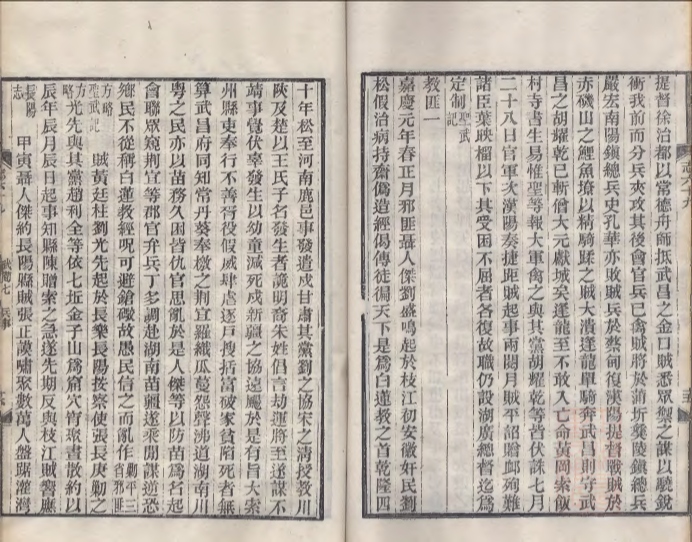 提督徐治都以常德舟師抵武昌之金口賊悉眾禦之謀以驍銳
衝我前而分兵夾攻其後會官兵已禽賊將於蒲圻陵鎮總兵
嚴宏南陽鎮總兵史孔華亦敗賊兵於蔡甸復漢陽提督戰賊於
赤磯山之鯉魚以精騎蹂之賊大潰逢龍單騎奔武昌則守武
昌之胡耀乾已斬僭大元獻城矣逢龍至不敢入亡命黃岡索飯
村寺書生易惟聖等報大軍禽之與其黨胡耀乾等皆伏誅七月
二十八日官軍次漢陽奏捷距賊起事兩閱月賊平詔贈卹殉難
諸臣葉映榴以下其受困不屈者各復故職仍設湖廣總督迄為
定制聖武記
教匪一
嘉慶元年春正月邪匪聶人傑劉盛鳴起於枝江初安徽奸民劉
松假治病持齋偽造經偈傳徒徧天下是為白蓮教之首乾隆四
十年松至河南鹿邑事發遣戍甘肅其黨劉之協宋之清授教川
陝及楚以王氏子名發生者詭明裔朱姓倡言劫運將至遂謀不
靖事覺伏辜發生以幼童減死戍新疆之協遠颺於是有旨大索
州縣吏奉行不善胥役假威肆虐逐戶搜括富破家貧陷死者無
算武昌府同知常丹葵奉檄之荊宜羅織瓜蔓怨聲沸道湖南川
粵之民亦以苗務久困皆仇官思亂於是人傑等以防苗為名起
會聯眾窺荊宜等郡官弁兵丁多調赴湖南苗疆遂乘間謀逆恐
鄉民不從稱白蓮教經呪可避鎗礮故愚民信之而亂作剿平三省邪匪
方略聖武記　賊黃廷柱劉光先起於長樂長陽按察使張長庚勦之
方略光先與其黨趙利全等依七坵金子山為窟穴宵聚晝散約以
辰年辰月辰日起事知縣陳贈索之急遂先期反與枝江賊響應
長陽志　甲寅聶人傑約長陽縣賊張正謨嘯聚數萬人盤踞灌灣
武備七　兵事